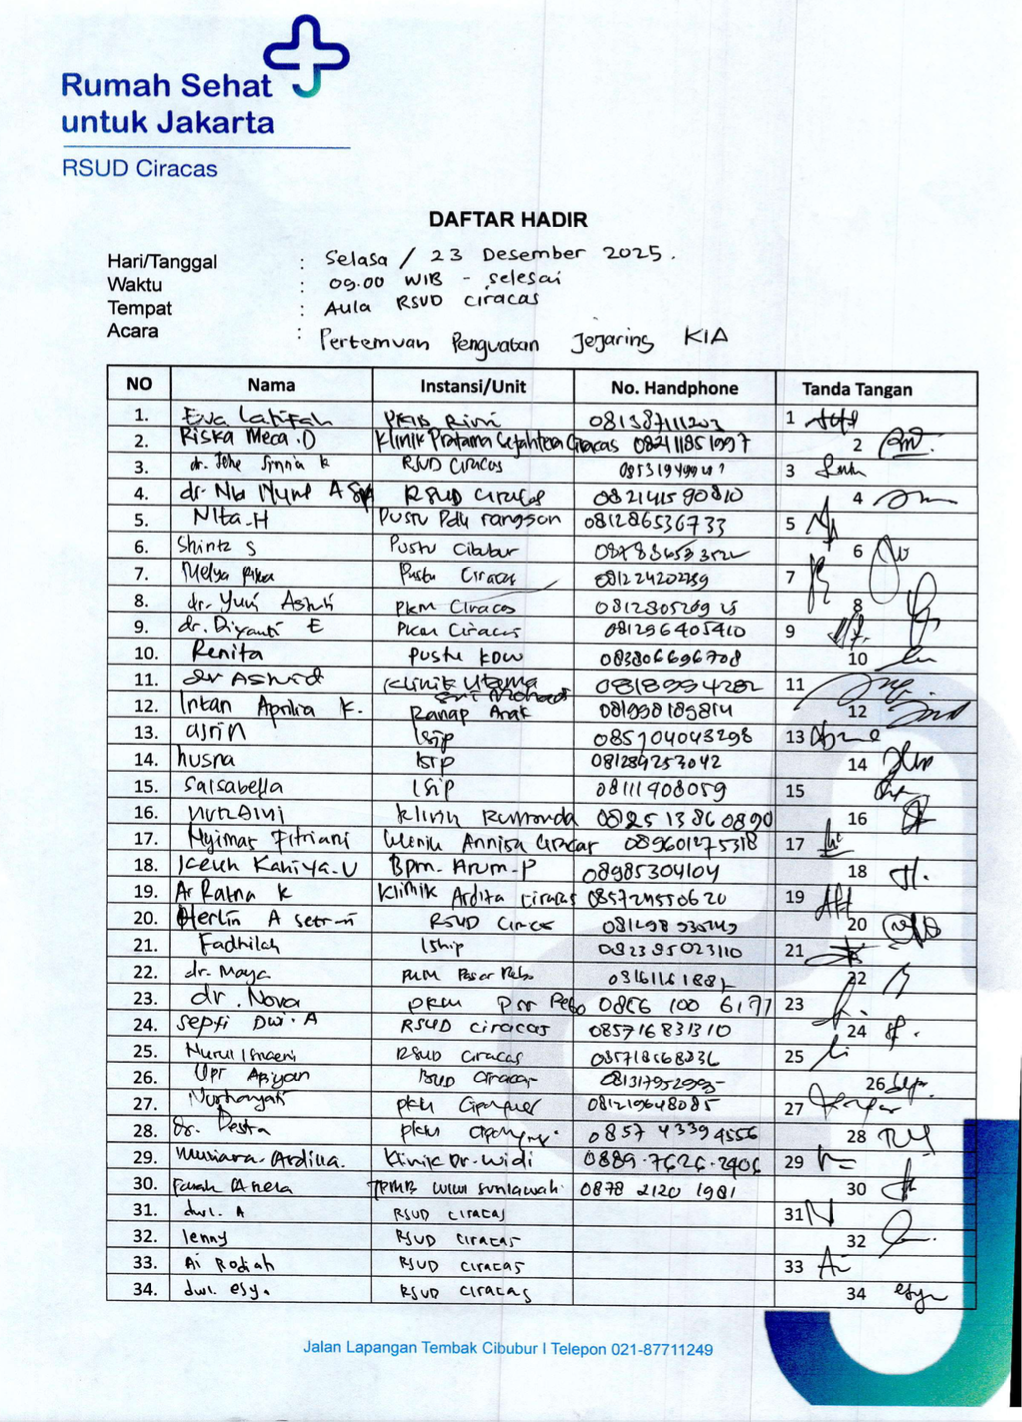 Rumah Sehat
untuk Jakarta
RSUD Ciracas
DAFTAR HADIR
Hari/Tanggal : Selasa / 23 Desember 2025.
Waktu : 09.00 WIB - selesai
Tempat : Aula RSUD Ciracas
Acara : Pertemuan Penguatan Jejaring KIA
NO Nama Instansi/Unit No. Handphone Tanda Tangan
1. Eva Latifah 1
2. Riska Meca .D Klinik Pratama Sejahtera Ciracas 082118851997 2
3. dr. RSUD Ciracas 3
4. dr. RSUD Ciracas 082141590810 4
5. Nita-H Pustu Pdk ranggon 081286536733 5
6. Shinta S Pustu Cibubur 6
7. Melya Pustu Ciracas 081224202239 7
8. dr. Yuni Astuti PKM Ciracas 8
9. dr. Diyanti E PKM Ciracas 081296405410 9
10. Renita Pustu KDW 083806696708 10
11. dr Astrid Klinik Utama 11
12. Intan Aprilia K. Ranap Anak 081998189814 12
13. asrin Isip 085704043298 13
14. husna Isip 081289253042 14
15. Salsabella Isip 08111908059 15
16. nuraini Klinik 082513860890 16
17. Nyimas Fitriani Klinik Annisa Ciracas 089601275318 17
18. Iceuh Kaniya.U Bpm. Arum-P 08985304104 18
19. Ar Ratna K Klinik Ardita Ciracas 085724550620 19
20. Herlin A RSUD Ciracas 20
21. Fadhilah Iship 082395023110 21
22. dr. Maya PKM Pasar Rebo 22
23. dr. Nova pkm Psr Rebo 0856 100 6177 23
24. Septi Dwi. A RSUD Ciracas 085716831310 24
25. Nurul Isnaeni RSUD Ciracas 085718568236 25
26. Upr Apiyan RSUD Ciracas 26
27. Nurhayati pkm Cipayung 081219648085 27
28. dr. Destra pkm Cipayung. 0857 4339 4556 28
29. Mutiara. Ardilla. Klinik Dr. Widi 0889.7626.2406 29
30. Farah TPMB Wiwi 0878 2120 1981 30
31. dwi. A RSUD Ciracas 31
32. lenny RSUD Ciracas 32
33. Ai Rodiah RSUD Ciracas 33
34. dwi. esy. RSUD Ciracas 34
Jalan Lapangan Tembak Cibubur I Telepon 021-87711249